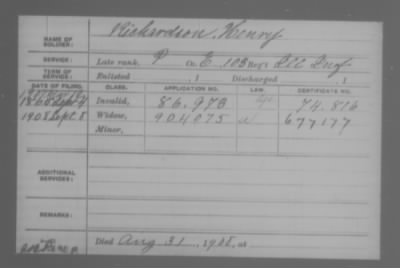 NAME OF SOLDIER: Richardson, Henry
SERVICE: Late rank, P Co. E, 103 Reg't Ill Inf
TERM OF SERVICE: Enlisted , 1 Discharged , 1
DATE OF FILING. CLASS. APPLICATION NO. LAW. CERTIFICATE NO.
1865 Sept 4 Invalid, 86.973 74.816
1908 Sept. 8 Widow, 904075 677177
Minor,
ADDITIONAL SERVICES:
REMARKS:
Died Aug 31, 1908, at